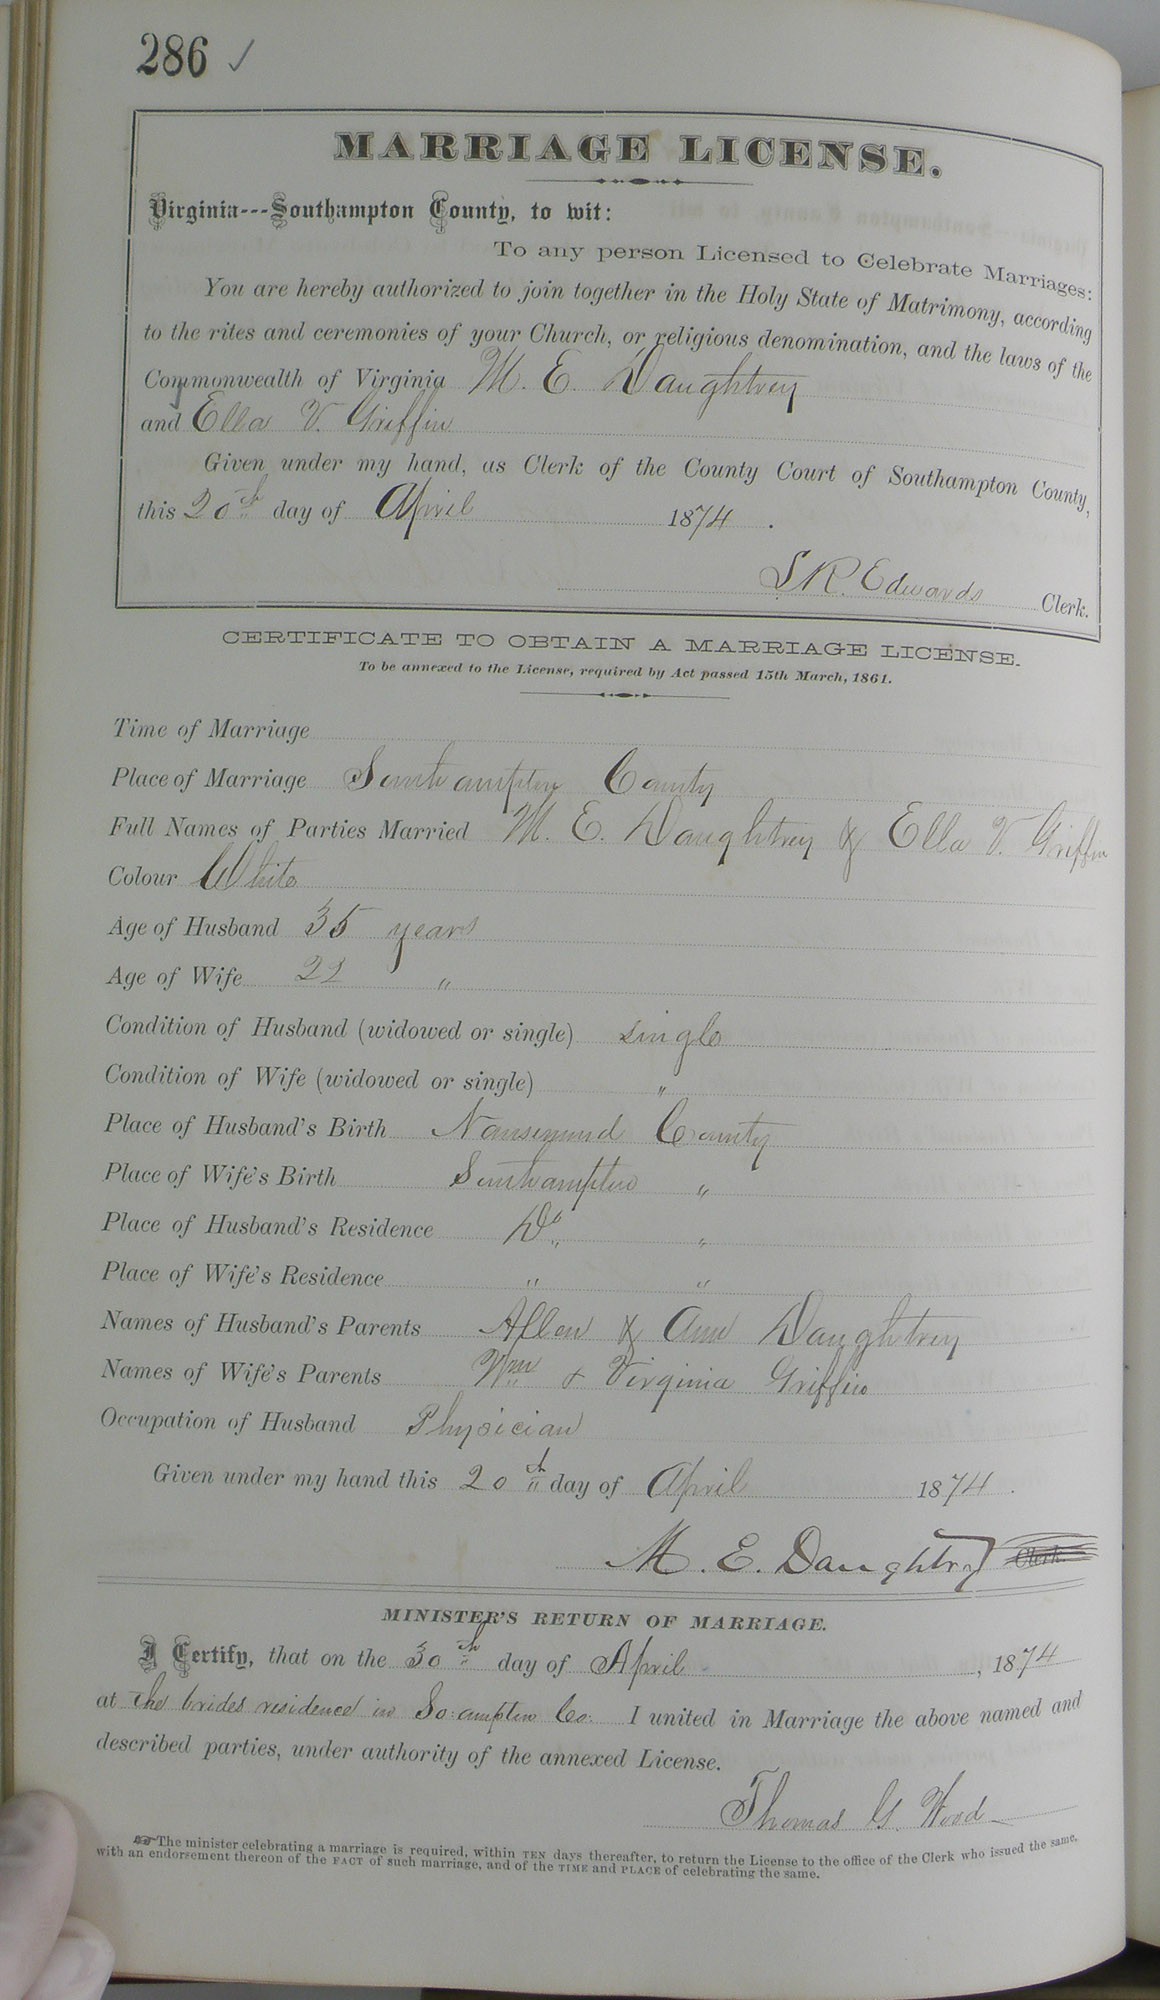 286 ✓
MARRIAGE LICENSE.
Virginia---Southampton County, to wit:
To any person Licensed to Celebrate Marriages:
You are hereby authorized to join together in the Holy State of Matrimony, according
to the rites and ceremonies of your Church, or religious denomination, and the laws of the
Commonwealth of Virginia M. E. Daughtrey
and Ella V. Griffin
Given under my hand, as Clerk of the County Court of Southampton County,
this 20th day of April 1874.
L. R. Edwards Clerk.
CERTIFICATE TO OBTAIN A MARRIAGE LICENSE.
To be annexed to the License, required by Act passed 15th March, 1861.
Time of Marriage
Place of Marriage Southampton County
Full Names of Parties Married M. E. Daughtrey & Ella V. Griffin
Colour White
Age of Husband 35 years
Age of Wife 22 "
Condition of Husband (widowed or single) single
Condition of Wife (widowed or single) "
Place of Husband's Birth Nansemund County
Place of Wife's Birth Southampton "
Place of Husband's Residence Do "
Place of Wife's Residence " "
Names of Husband's Parents Allen & Ann Daughtrey
Names of Wife's Parents Wm & Virginia Griffin
Occupation of Husband Physician
Given under my hand this 20th day of April 1874.
M. E. Daughtrey Clerk.
MINISTER'S RETURN OF MARRIAGE.
I Certify, that on the 30th day of April, 1874
at the brides residence in So:ampton Co: I united in Marriage the above named and
described parties, under authority of the annexed License.
Thomas G. Wood
☞ The minister celebrating a marriage is required, within TEN days thereafter, to return the License to the office of the Clerk who issued the same,
with an endorsement thereon of the FACT of such marriage, and of the TIME and PLACE of celebrating the same.